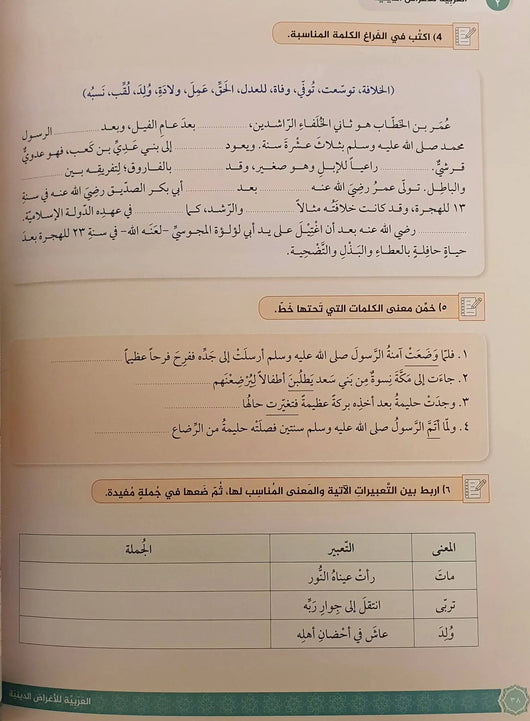 ٢ العربية للأغراض الدينية
٤) اكتُب في الفراغ الكلمة المناسبة.
(الخلافة، توسّعت، تُوفّي، وفاة، للعدل، الحَقّ، عَمِلَ، ولادةِ، وُلِدَ، لُقِّب، نَسبُه)
عُمَر بن الخَطّاب هو ثاني الخُلفاءِ الرّاشدين، .......... بعدَ عامِ الفيل، وبعد .......... الرسول
محمد صلى الله عليه وسلم بثلاثَ عشْرةَ سنة. ويعود .......... إلى بني عَدِيِّ بن كَعب، فهو عدويٌّ
قرشيٌّ. .......... راعياً للإبلِ وهو صغير، وقد .......... بالفاروق؛ لتفريقه بين ..........
والباطِل. تولّى عمرُ رضِيَ الله عنه .......... بعد .......... أبي بكر الصدّيق رضِيَ الله عنه في سنةِ
١٣ للهجرة، وقد كانت خلافتُه مثالاً .......... والرشد، كما .......... في عهدِه الدّولة الإسلاميّة.
.......... رضي الله عنه بعد أن اغْتِيْلَ على يد أبي لؤلؤة المجوسيِّ -لعَنَه الله- في سنةِ ٢٣ للهجرة بعدَ
حياةٍ حافلةٍ بالعطاءِ والبَذْلِ والتَّضْحِية.
٥) خمّن معنى الكلمات التي تَحتها خَطّ.
١. فلمّا وَضَعَتْ آمنةُ الرَّسولَ صلى الله عليه وسلم أرسلَتْ إلى جَدِّه ففرِحَ فرحاً عظيماً ..........
٢. جاءَت إلى مَكَّةَ نِسوةٌ مِن بَني سَعد يَطلُبنَ أطفالاً لِيُرضِعْنَهم ..........
٣. وجدَتْ حليمةُ بعد أخذِه بركةً عظيمةً فتغيّرت حالُها ..........
٤. ولمّا أتمَّ الرَّسولُ صلى الله عليه وسلم سنتين فصلَتْه حليمةُ من الرِّضاع ..........
٦) اربط بين التَّعبيراتِ الآتية والمَعنى المُناسِب لها، ثُمَّ ضَعها في جُملةٍ مُفيدة.
المعنى التّعبير الجُملة
ماتَ رأتْ عيناهُ النُّور
تربّى انتقلَ إلى جِوارِ رَبِّه
وُلِدَ عاشَ في أحْضانِ أهلِه
٣٨ العربيّة للأغراض الدينية